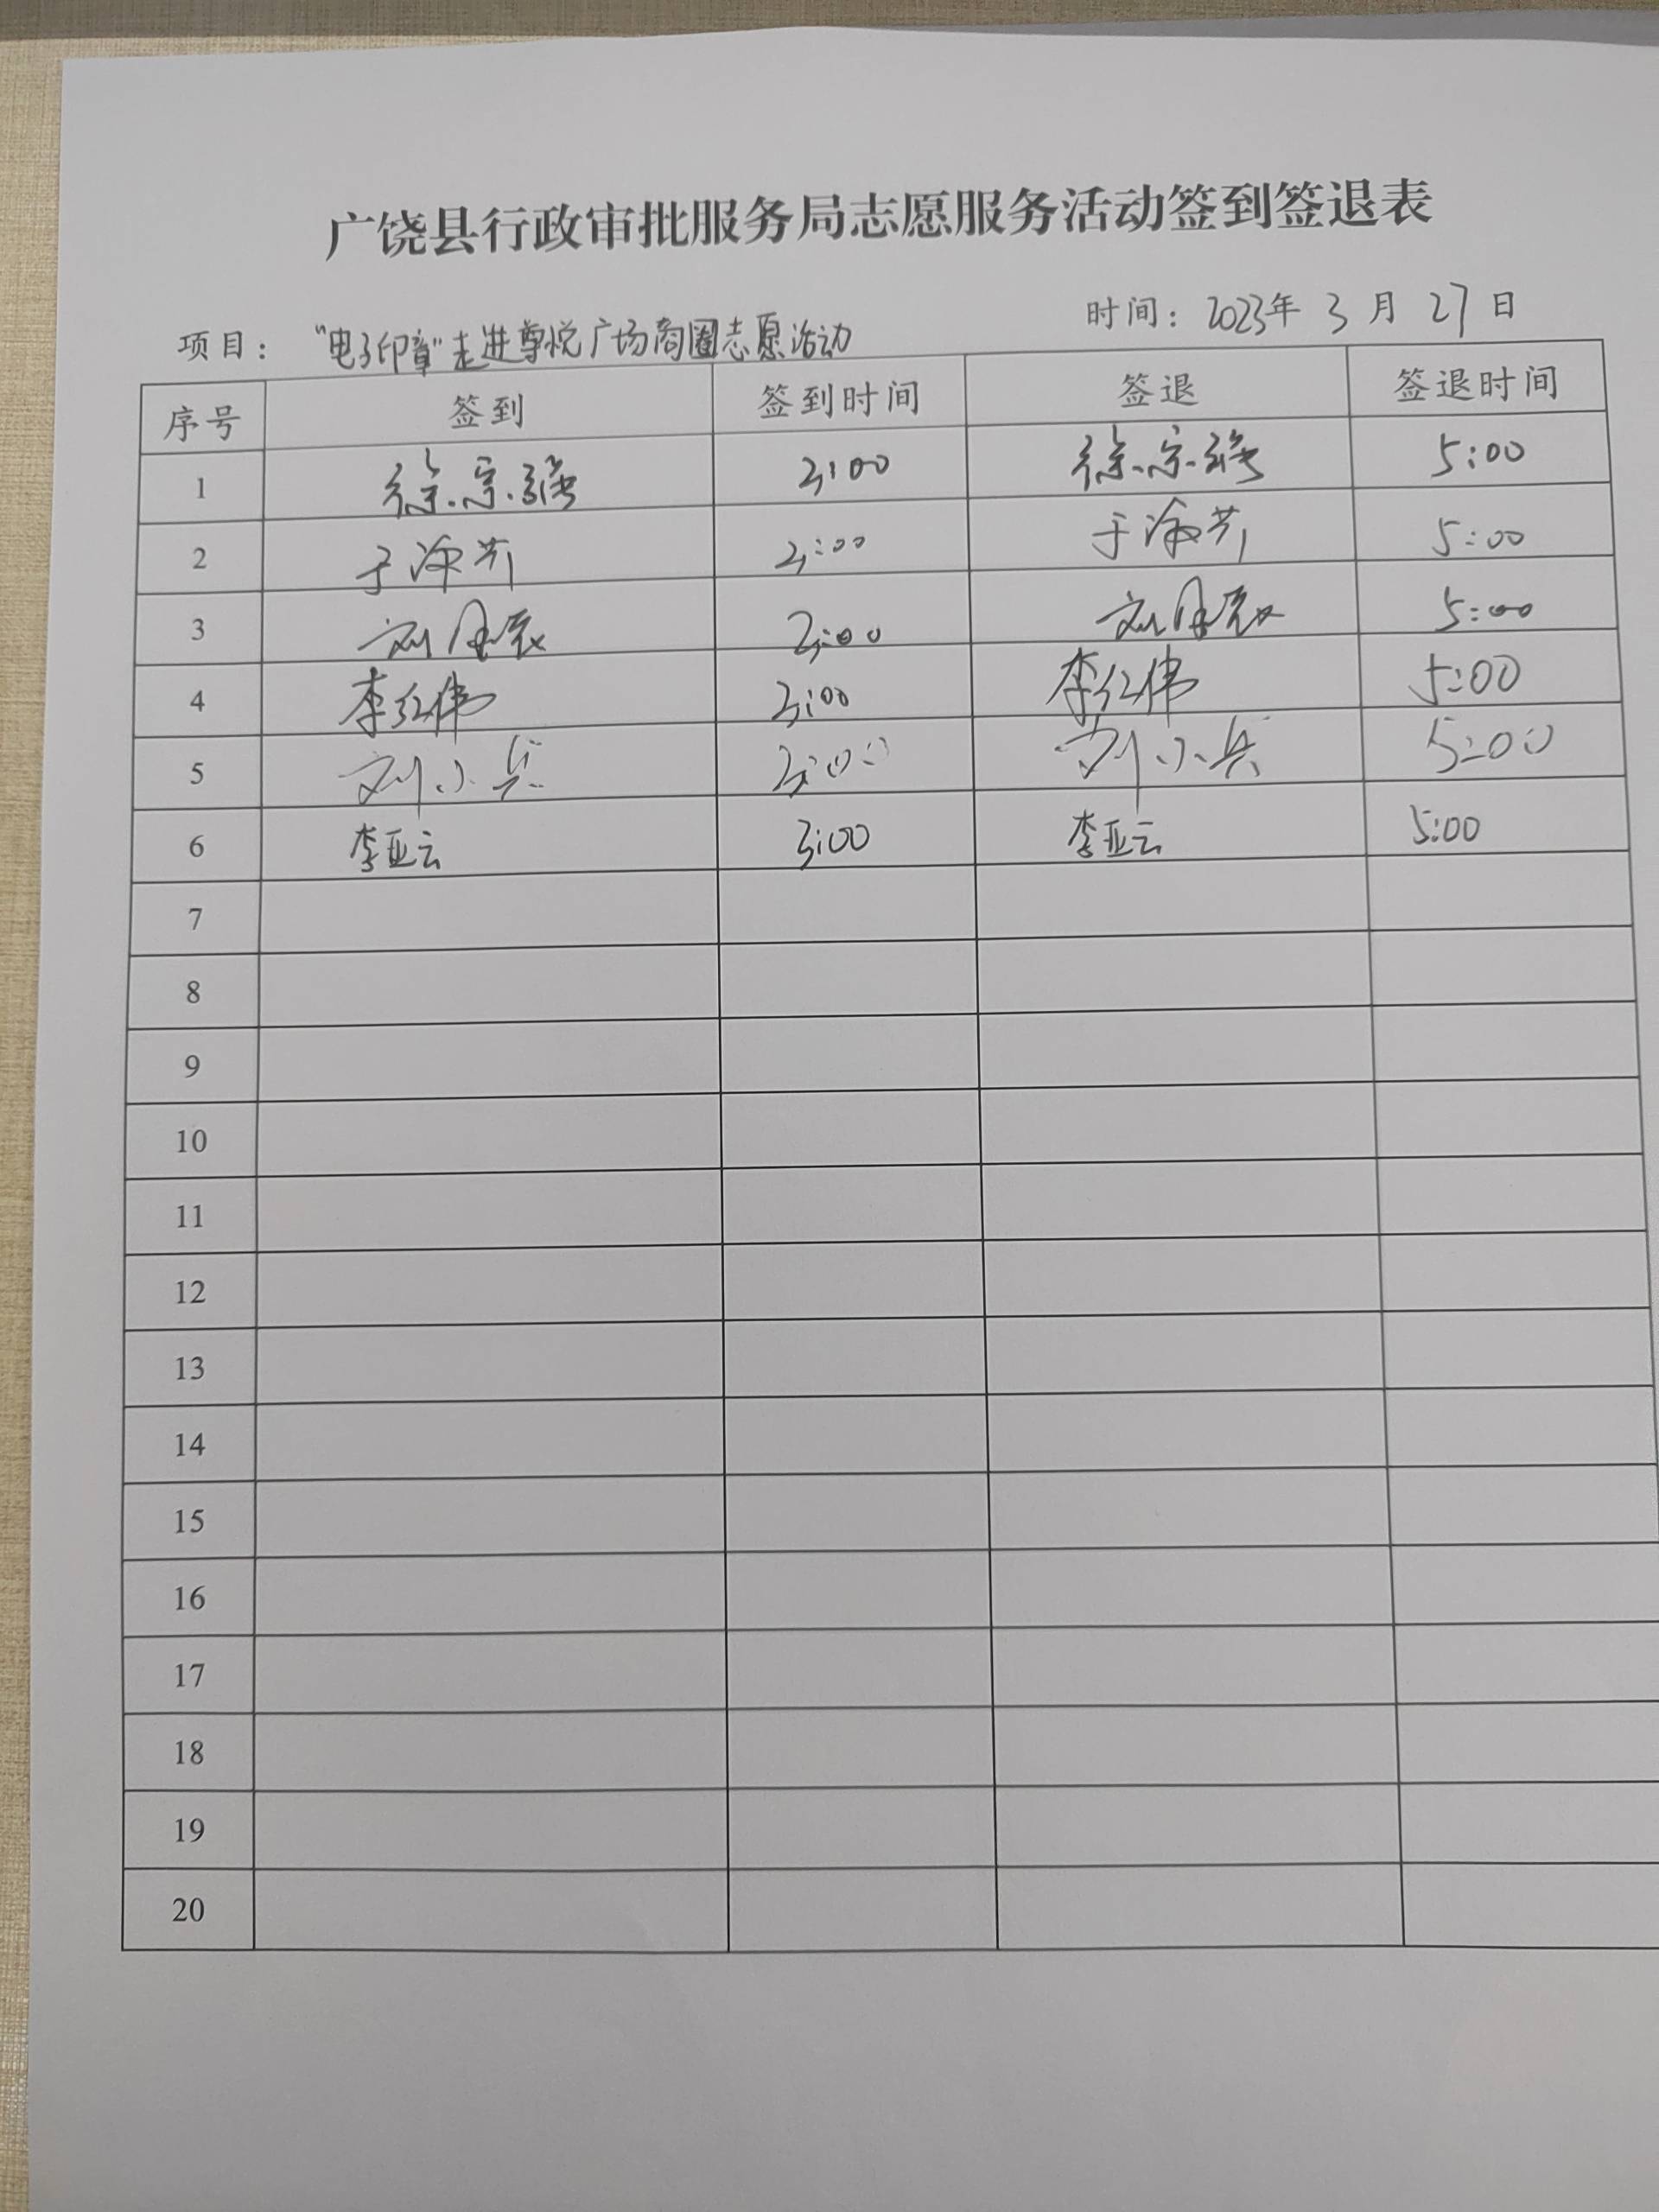 广饶县行政审批服务局志愿服务活动签到签退表
项目： “电子印章”走进尊悦广场商圈志愿活动 时间：2023年 3 月 27 日
序号 签到 签到时间 签退 签退时间
1 徐宗 3:00 徐宗 5:00
2 于 3:00 于 5:00
3 刘 3:00 刘 5:00
4 李红伟 3:00 李红伟 5:00
5 刘小兵 3:00 刘小兵 5:00
6 李亚云 3:00 李亚云 5:00
7
8
9
10
11
12
13
14
15
16
17
18
19
20